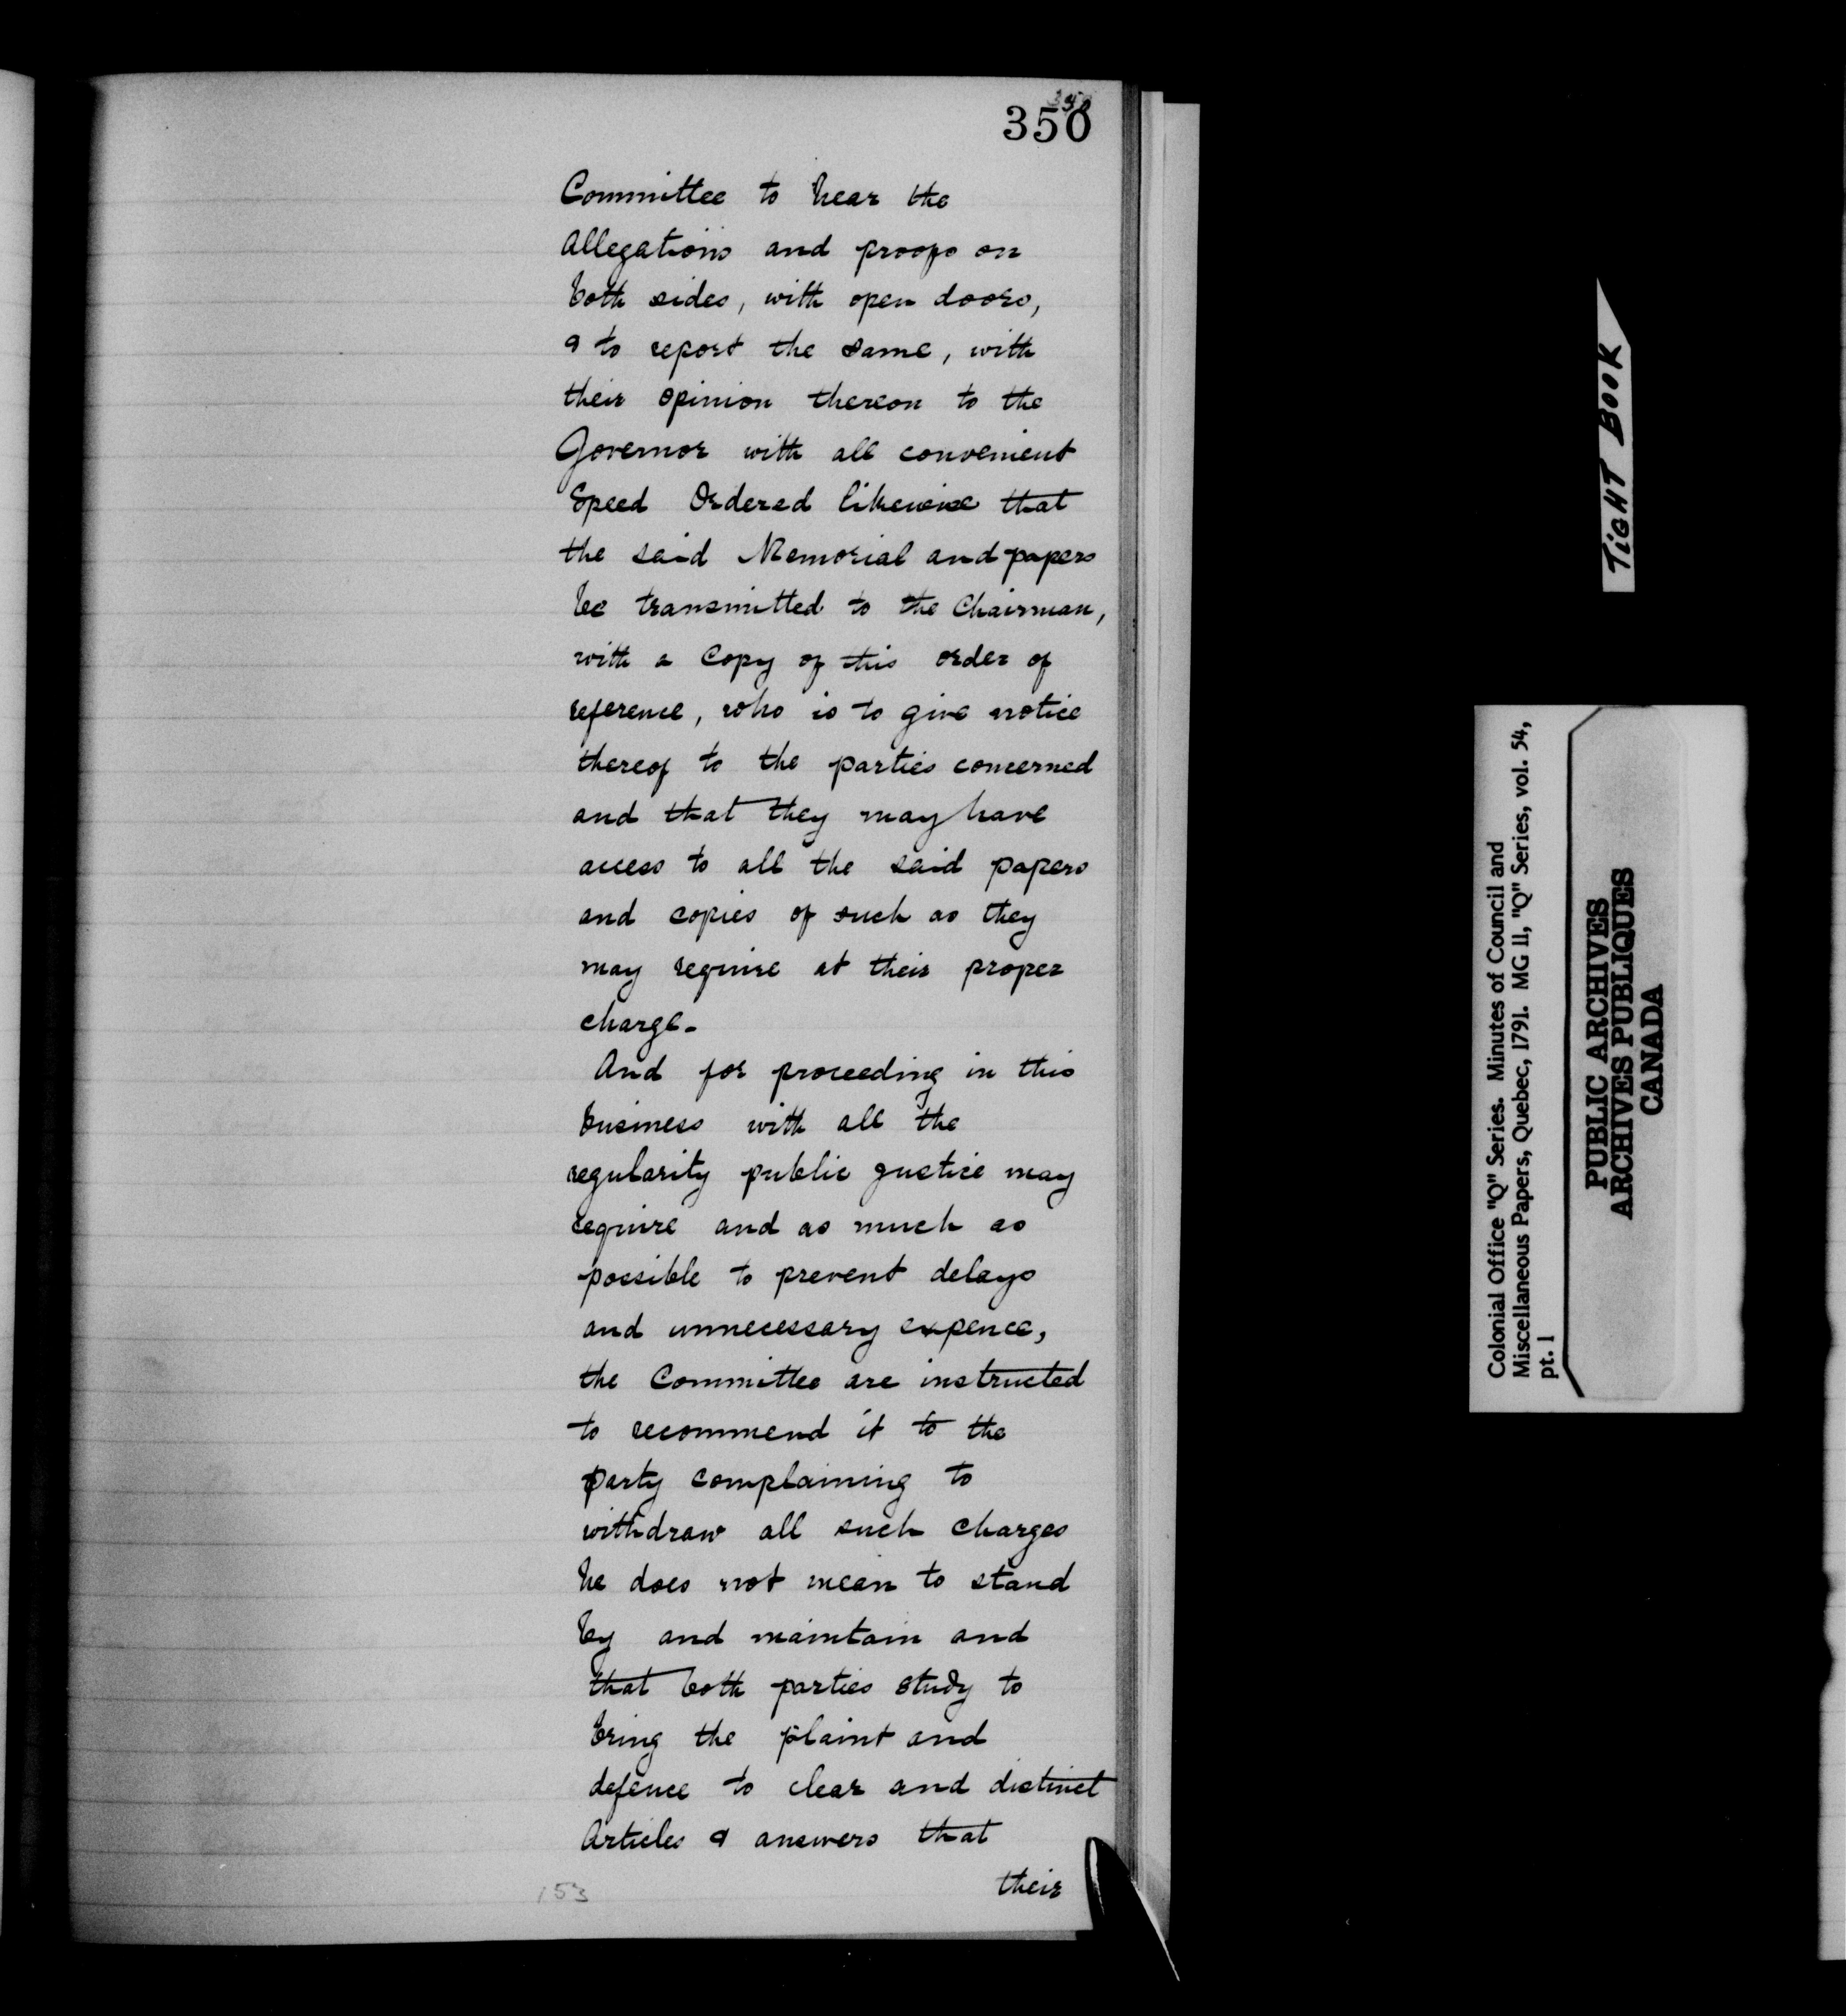 350
Committee to hear the
Allegations and proofs on
both sides, with open doors,
& to report the same, with
their opinion thereon to the
Governor with all convenient
Speed Ordered likewise that
the said Memorial and papers
be transmitted to the Chairman,
with a Copy of this order of
reference, who is to give notice
thereof to the parties concerned
and that they may have
access to all the said papers
and copies of such as they
may require at their proper
charge.
And for proceeding in this
business with all the
regularity public justice may
require and as much as
possible to prevent delays
and unnecessary expence,
the Committee are instructed
to recommend it to the
party complaining to
withdraw all such charges
he does not mean to stand
by and maintain and
that both parties study to
bring the plaint and
defence to clear and distinct
Articles & answers that
their
153
TIGHT BOOK
Colonial Office "Q" Series. Minutes of Council and
Miscellaneous Papers, Quebec, 1791. MG 11, "Q" Series, vol. 54,
pt. 1
PUBLIC ARCHIVES
ARCHIVES PUBLIQUES
CANADA